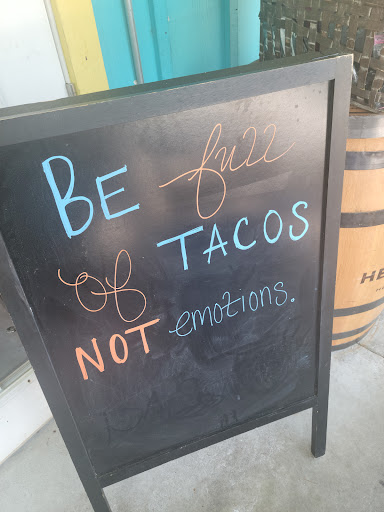 BE full
of TACOS
NOT emotions.
HE